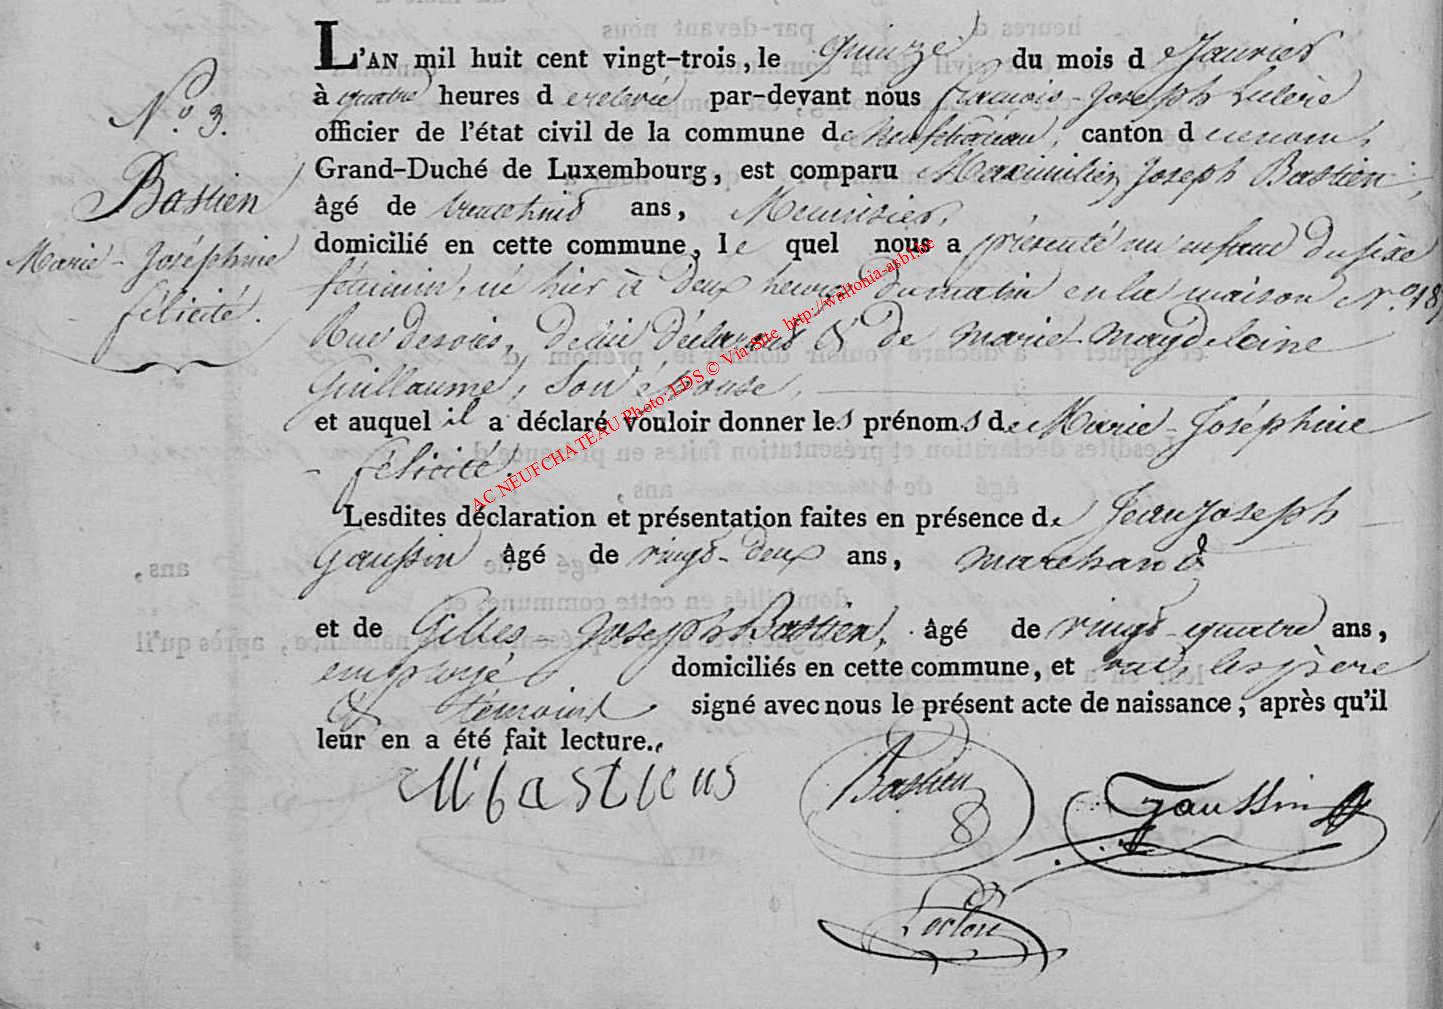 L'AN mil huit cent vingt-trois, le quinze du mois d Janvier
à quatre heures d par-devant nous françois-Joseph
officier de l'état civil de la commune de Neufchâteau, canton d
Grand-Duché de Luxembourg, est comparu Maximilien Joseph Bastien,
âgé de ans, Menuisier,
domicilié en cette commune, le quel nous a présenté un enfant du sexe
féminin, né hier à deux heures du matin en la maison N.º 18,
Rue de lui déclarant & de marie-magdeleine
Guillaume, Son épouse,
et auquel il a déclaré vouloir donner les prénoms de Marie-Joséphine
-félicité.
Lesdites déclaration et présentation faites en présence de Jean Joseph
Gaussin âgé de vingt-deux ans, marchand
et de Gilles-Joseph Bastien, âgé de vingt-quatre ans,
employé domiciliés en cette commune, et les père
& témoins signé avec nous le présent acte de naissance, après qu'il
leur en a été fait lecture.
N.º 3.
Bastien
Marie-Joséphine
félicité.
Bastien
Gaussin
AC NEUFCHATEAU Photo: LDS © Via Site http://wallonia-asbl.be